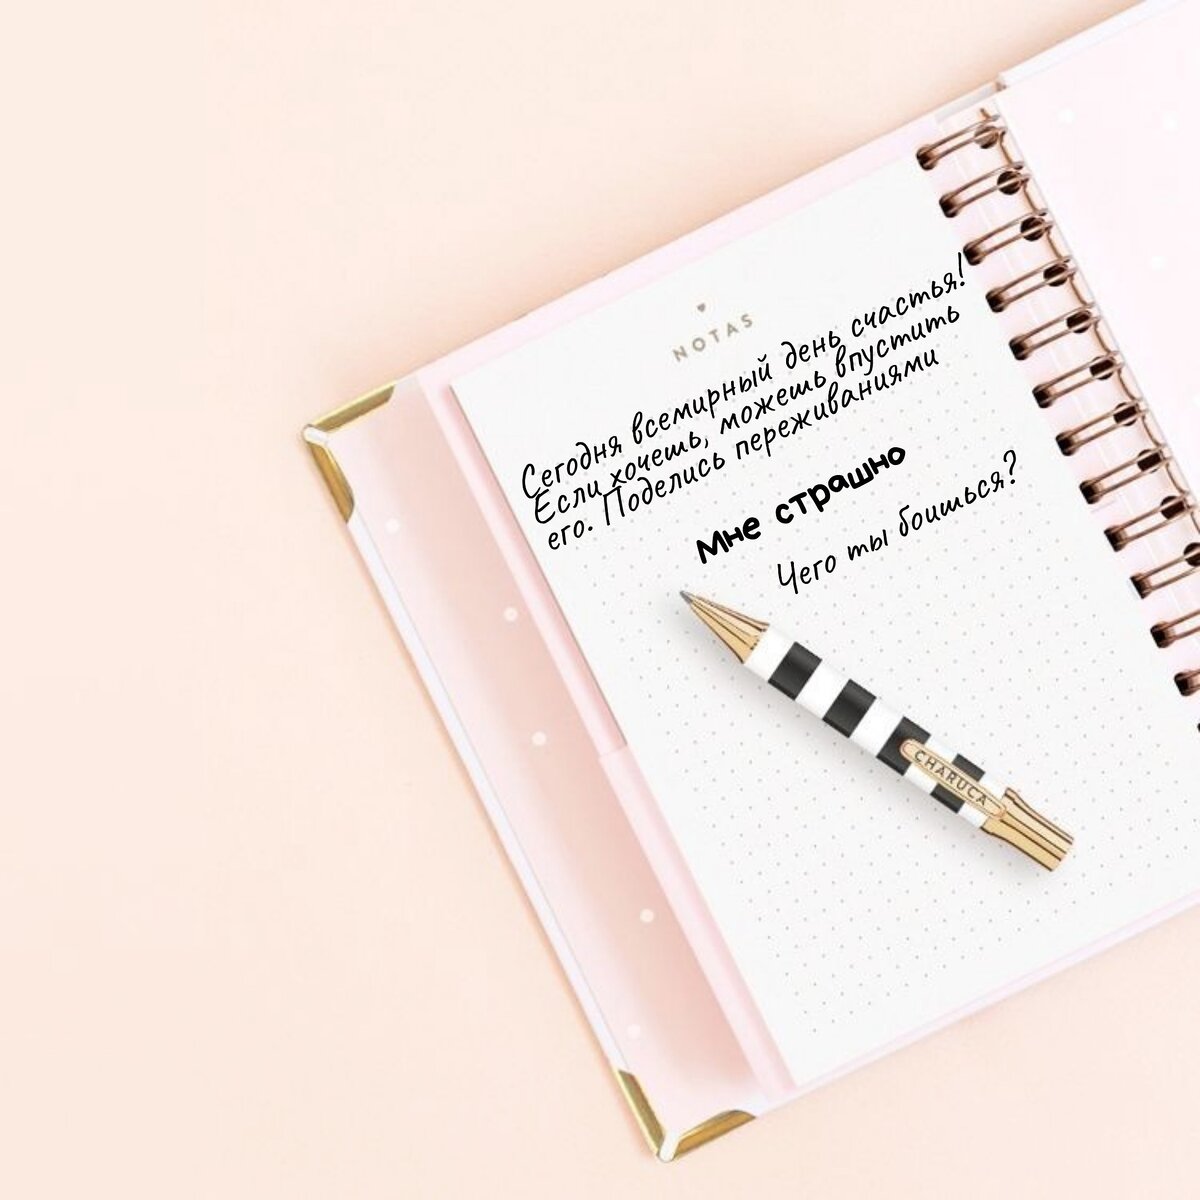 NOTAS
Сегодня всемирный день счастья!
Если хочешь, можешь впустить
его. Поделись переживаниями
Мне страшно
Чего ты боишься?
CHARUCA